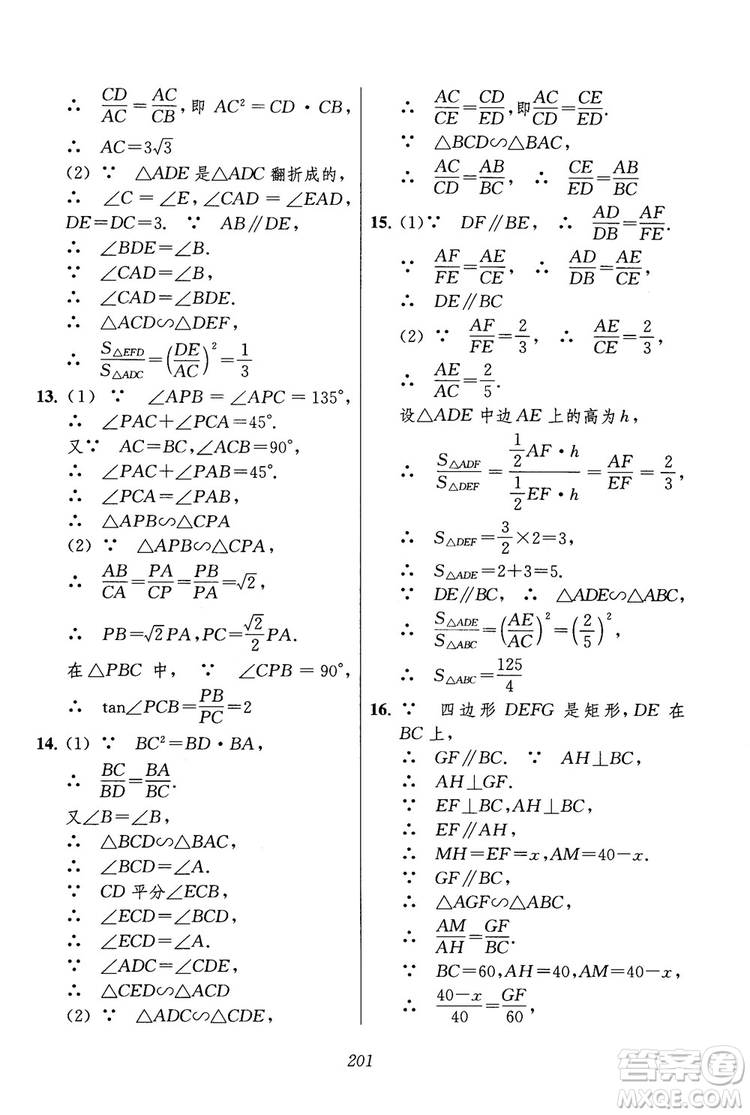 ∴ CD/AC=AC/CB,即 AC²=CD·CB,
∴ AC=3√3
(2) ∵ △ADE 是△ADC 翻折成的,
∴ ∠C=∠E,∠CAD=∠EAD,
DE=DC=3. ∵ AB∥DE,
∴ ∠BDE=∠B.
∵ ∠CAD=∠B,
∴ ∠CAD=∠BDE.
∴ △ACD∽△DEF,
∴ S△EFD/S△ADC=(DE/AC)²=1/3
13. (1) ∵ ∠APB=∠APC=135°,
∴ ∠PAC+∠PCA=45°.
又∵ AC=BC,∠ACB=90°,
∴ ∠PAC+∠PAB=45°.
∴ ∠PCA=∠PAB,
∴ △APB∽△CPA
(2) ∵ △APB∽△CPA,
∴ AB/CA=PA/CP=PB/PA=√2,
∴ PB=√2PA,PC=√2/2PA.
在△PBC 中, ∵ ∠CPB=90°,
∴ tan∠PCB=PB/PC=2
14. (1) ∵ BC²=BD·BA,
∴ BC/BD=BA/BC.
又∠B=∠B,
∴ △BCD∽△BAC,
∴ ∠BCD=∠A.
∵ CD 平分∠ECB,
∴ ∠ECD=∠BCD,
∴ ∠ECD=∠A.
∵ ∠ADC=∠CDE,
∴ △CED∽△ACD
(2) ∵ △ADC∽△CDE,
∴ AC/CE=CD/ED,即AC/CD=CE/ED.
∵ △BCD∽△BAC,
∴ AC/CD=AB/BC, ∴ CE/ED=AB/BC
15. (1)∵ DF∥BE, ∴ AD/DB=AF/FE.
∵ AF/FE=AE/CE, ∴ AD/DB=AE/CE,
∴ DE∥BC
(2) ∵ AF/FE=2/3, ∴ AE/CE=2/3,
∴ AE/AC=2/5.
设△ADE 中边 AE 上的高为 h,
∴ S△ADF/S△DEF=(1/2AF·h)/(1/2EF·h)=AF/EF=2/3,
∴ S△DEF=3/2×2=3,
∴ S△ADE=2+3=5.
∵ DE∥BC, ∴ △ADE∽△ABC,
∴ S△ADE/S△ABC=(AE/AC)²=(2/5)²,
∴ S△ABC=125/4
16. ∵ 四边形 DEFG 是矩形,DE 在
BC 上,
∴ GF∥BC. ∵ AH⊥BC,
∴ AH⊥GF.
∵ EF⊥BC,AH⊥BC,
∴ EF∥AH,
∴ MH=EF=x,AM=40-x.
∵ GF∥BC,
∴ △AGF∽△ABC,
∴ AM/AH=GF/BC.
∵ BC=60,AH=40,
∴ (40-x)/40=GF/60,
201
答案圈
MXQE.COM